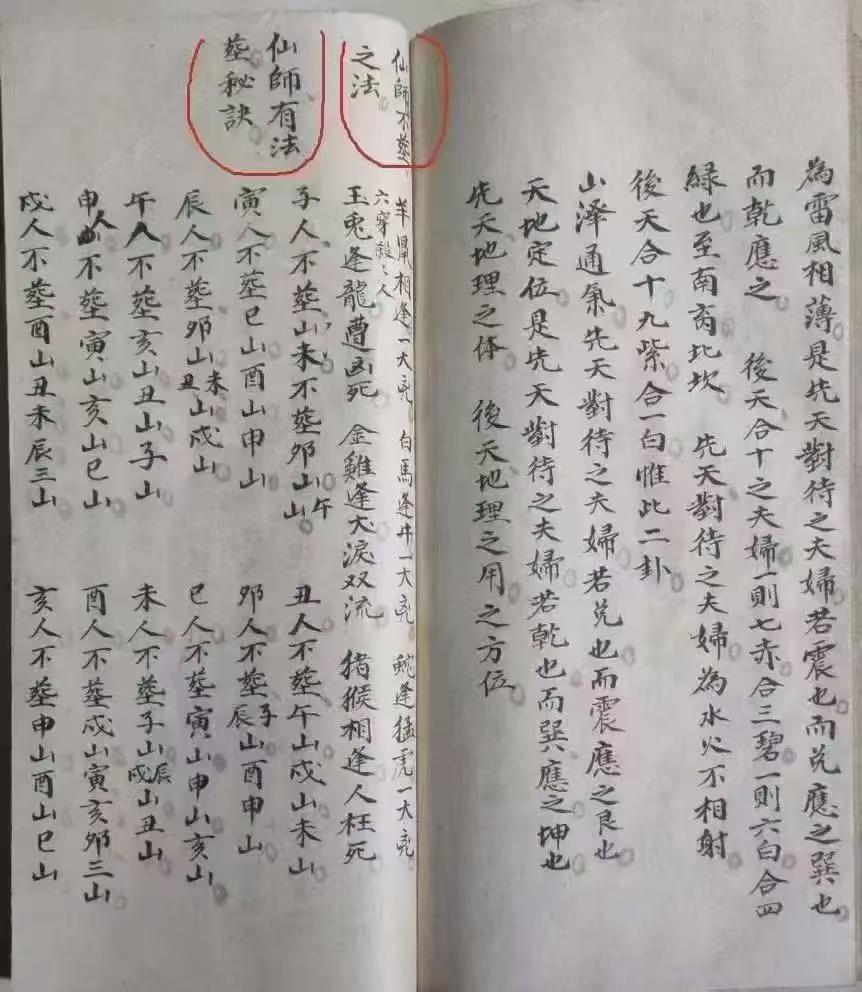 為雷風相薄是先天對待之夫婦若震也而兑應之巽也
而乾應之　後天合十之夫婦一則七赤合三碧一則六白合四
緑也至南离北坎　先天對待之夫婦為水火不相射
後天合十九紫合一白惟此二卦
山泽通氣先天對待之夫婦若兑也而震應之艮也
天地定位是先天對待之夫婦若乾也而巽應之坤也
先天地理之体　後天地理之用之方位
仙師不塟
之法
羊鼠相逢一大兇　白馬逢牛一大兇　蛇逢猛虎一大兇
六穿殺之人
玉兎逢龍遭凶死　金雞逢犬淚双流　猪猴相逢人枉死
仙師有法
塟秘訣
子人不塟山未不塟夘山午山　丑人不塟午山戍山未山
寅人不塟巳山酉山申山　夘人不塟子辰山酉申山
辰人不塟夘山未丑山戍山　巳人不塟寅山申山亥山
午人不塟亥山丑山子山　未人不塟子山辰戍山丑山
申人不塟寅山亥山巳山　酉人不塟戍山寅亥夘三山
戍人不塟酉山丑未辰三山　亥人不塟申山酉山巳山